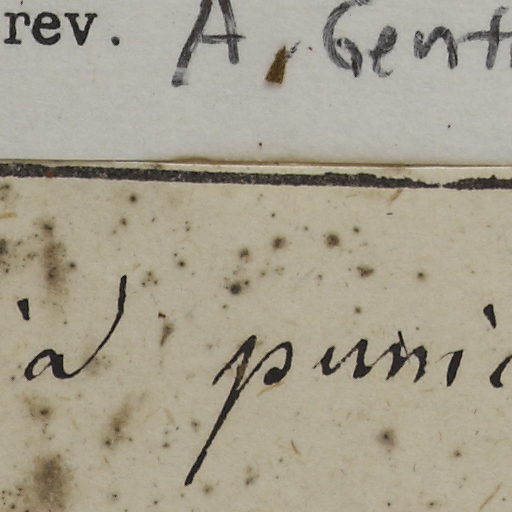 rev. A. Gent
id punic